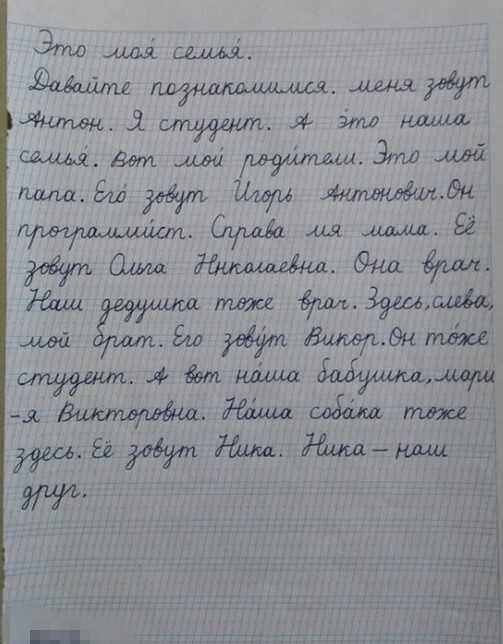 Это моя́ семья́.
Давайте познакомимся. меня зовут
Антон. Я студент. А э́то наша
семья́. вот мои́ роди́тели. Это мой
папа. Его́ зовут Игорь Антонович. Он
программи́ст. Справа ия мама. Её
зовут Ольга Николаевна. Она врач.
Наш дедушка тоже врач. Здесь, слева,
мой брат. Его зову́т Викор. Он то́же
студент. А вот на́ша бабушка, мари
-я Викторовна. На́ша соба́ка тоже
здесь. Её зовут Ника. Ника — наш
друг.